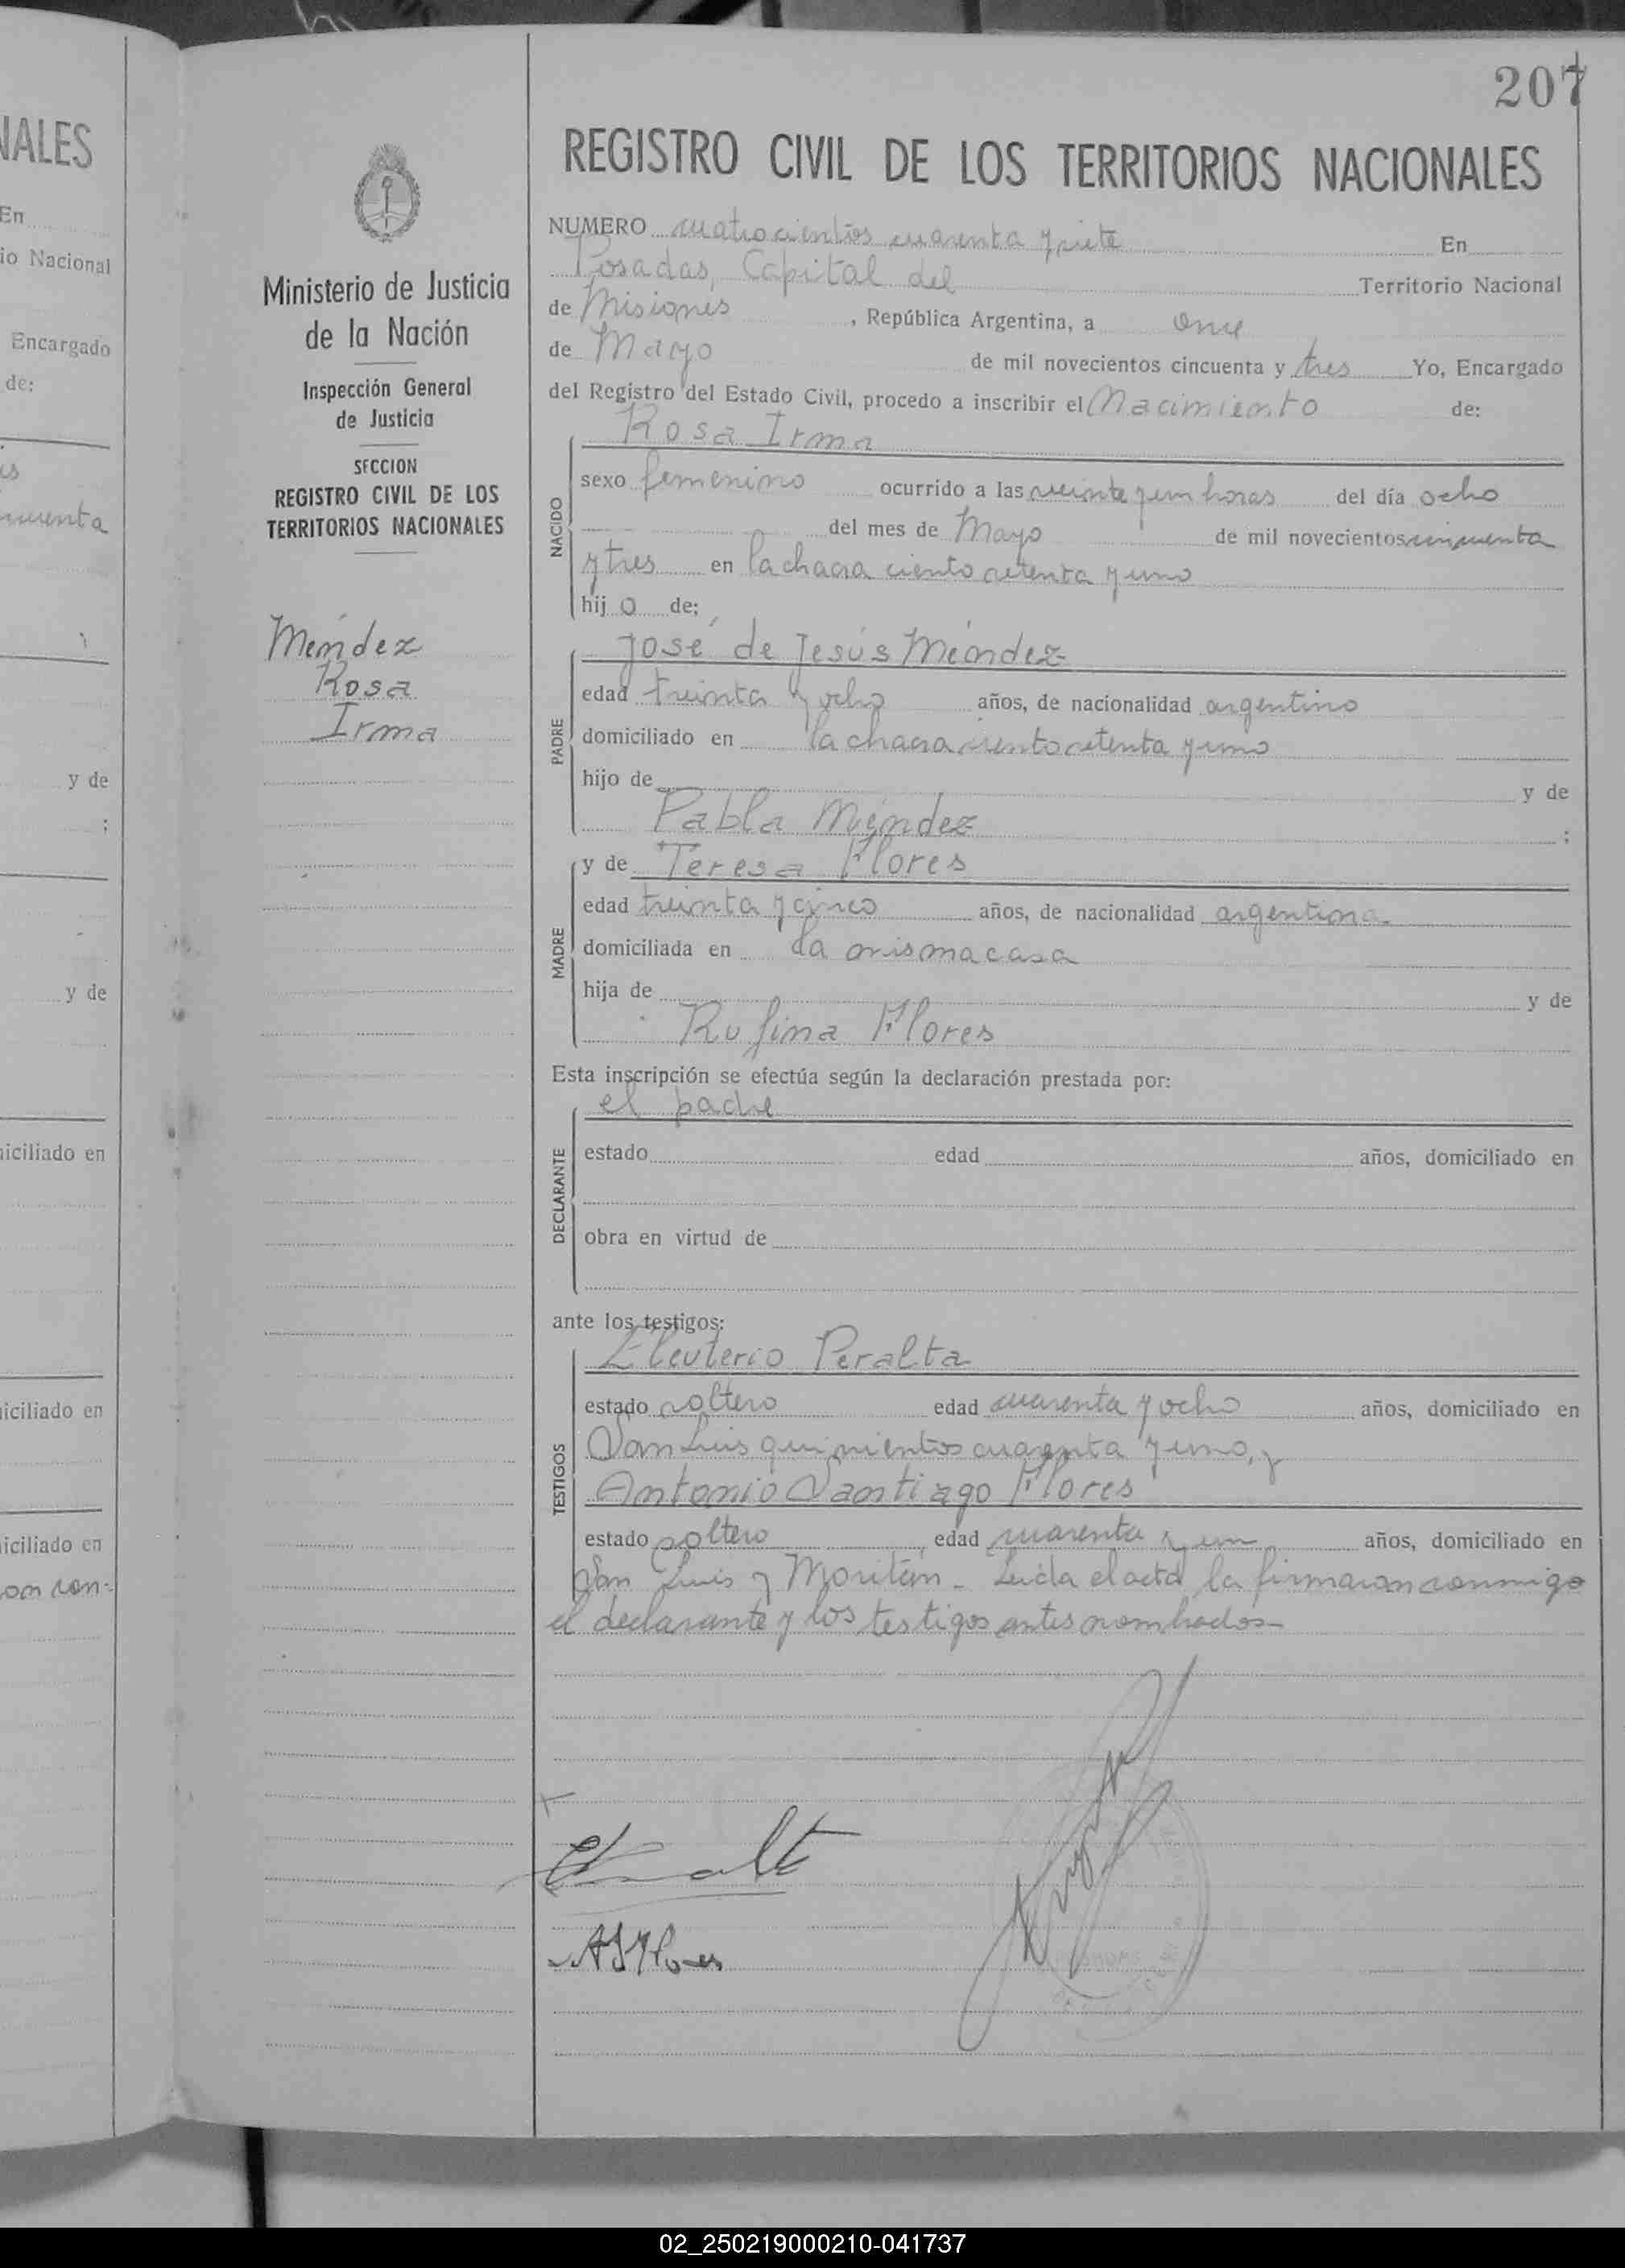 207
NALES
En
io Nacional
Encargado
de:
y de
;
y de
iciliado en
iciliado en
iciliado en
Ministerio de Justicia
de la Nación
Inspección General
de Justicia
SECCION
REGISTRO CIVIL DE LOS
TERRITORIOS NACIONALES
Méndez
Rosa
Irma
REGISTRO CIVIL DE LOS TERRITORIOS NACIONALES
NUMERO cuatrocientos cuarenta y siete En
Posadas, Capital del Territorio Nacional
de Misiones, República Argentina, a once
de Mayo de mil novecientos cincuenta y tres Yo, Encargado
del Registro del Estado Civil, procedo a inscribir el Nacimiento de:
Rosa Irma
NACIDO
sexo femenino ocurrido a las veinte y un horas del día ocho
del mes de Mayo de mil novecientos cincuenta
y tres en la chacra ciento setenta y uno
hijo de;
José de Jesús Méndez
PADRE
edad treinta y ocho años, de nacionalidad argentino
domiciliado en la chacra ciento setenta y uno
hijo de y de
Pabla Méndez ;
MADRE
y de Teresa Flores
edad treinta y cinco años, de nacionalidad argentina
domiciliada en la misma casa
hija de y de
Rufina Flores
Esta inscripción se efectúa según la declaración prestada por:
el padre
DECLARANTE
estado edad años, domiciliado en
obra en virtud de
ante los testigos:
Eleuterio Peralta
TESTIGOS
estado soltero edad cuarenta y ocho años, domiciliado en
San Luis quinientos cuarenta y uno, y
Antonio Santiago Flores
estado soltero edad cuarenta y un años, domiciliado en
San Luis y Moritán - Leída el acta la firmaron conmigo
el declarante y los testigos antes nombrados -
ASFlores
02_250219000210-041737